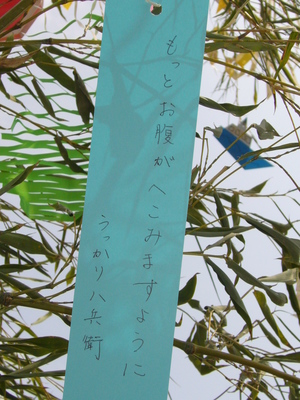 もっとお腹がへこみますように
うっかり八兵衛